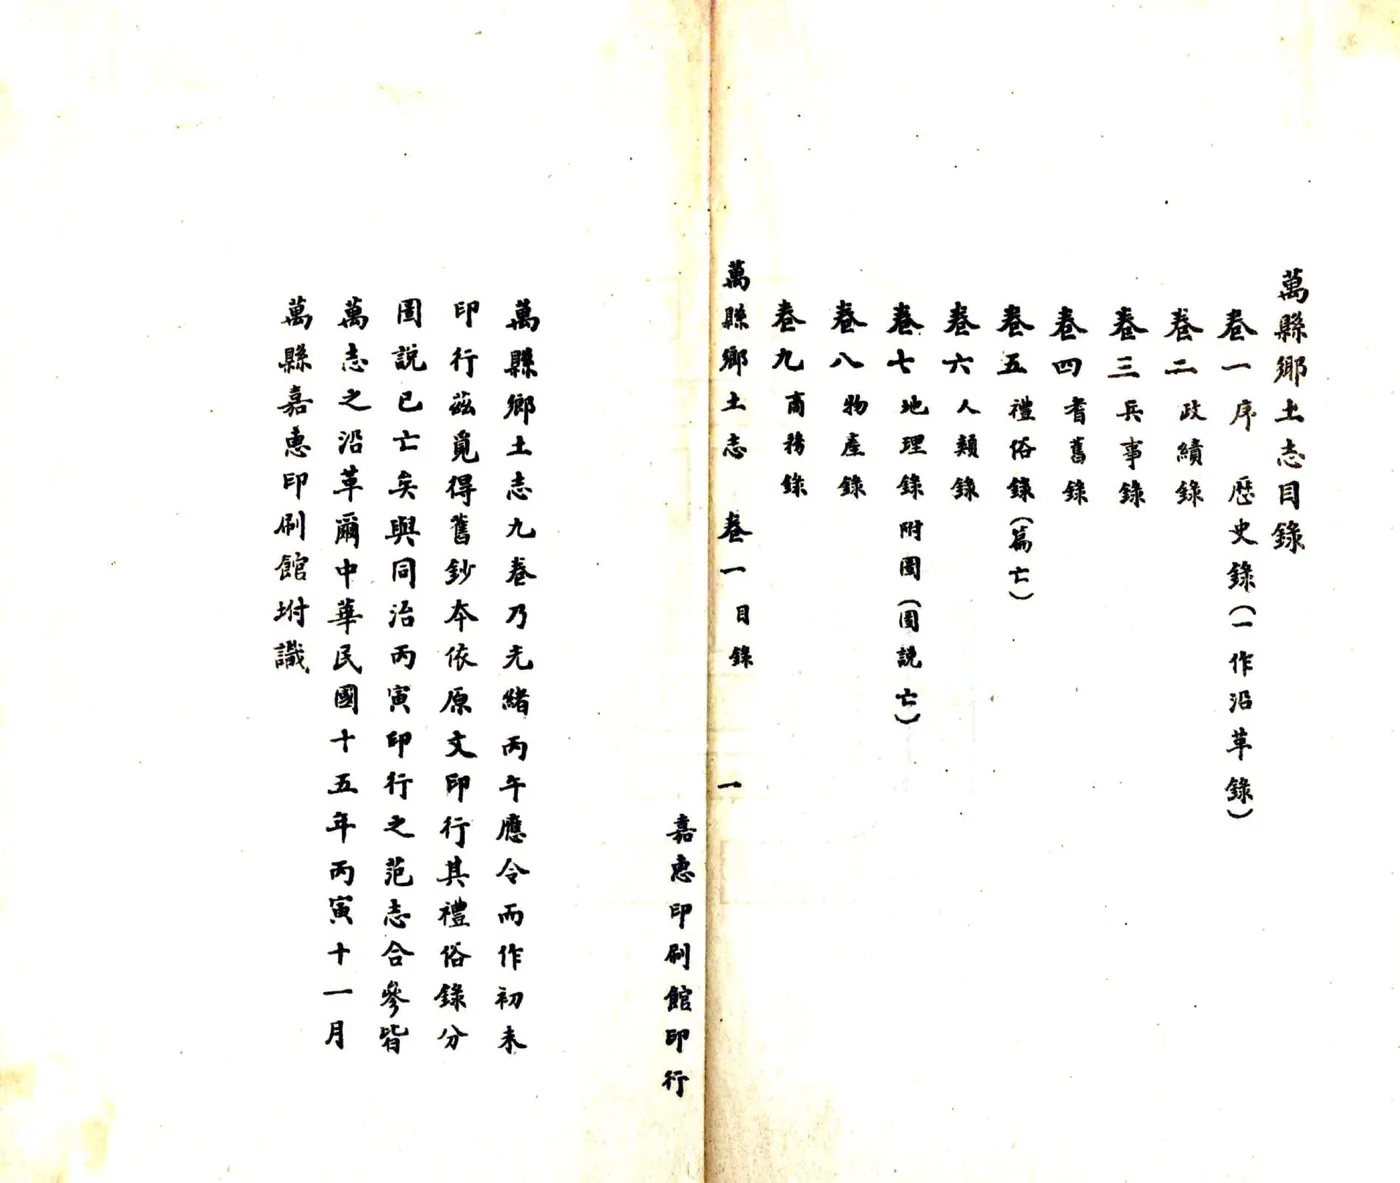 萬縣鄉土志目錄
卷一序 歷史錄(一作沿革錄)
卷二政績錄
卷三兵事錄
卷四耆舊錄
卷五禮俗錄(篇亡)
卷六人類錄
卷七地理錄附圖(圖説亡)
卷八物產錄
卷九商務錄
萬縣鄉土志 卷一目錄 一
嘉惠印刷館印行
萬縣鄉土志九卷乃光緒丙午應令而作初未
印行茲覓得舊鈔本依原文印行其禮俗錄分
圖說已亡矣與同治丙寅印行之范志合參皆
萬志之沿革爾中華民國十五年丙寅十一月
萬縣嘉惠印刷館坿識